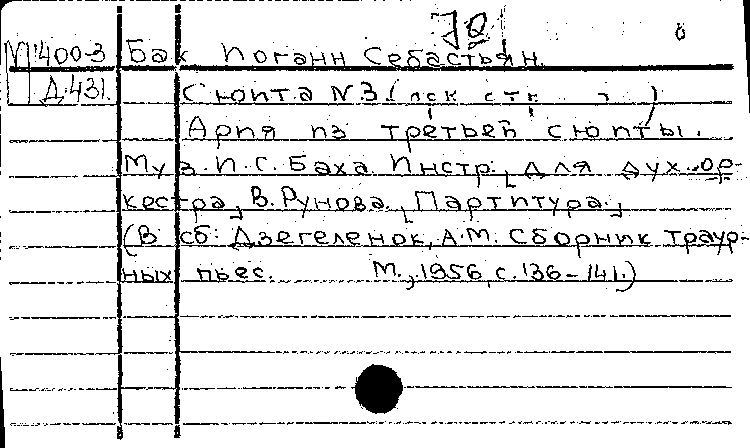 М400-3 Бах Иоганн Себастьян.
Д.431. Сюита N.3.(
Ария из третьей сюиты.
Муз. И.С. Баха. Инстр. [для дух. ор-
кестра] В. Рунова. [Партитура.]
(В сб: Дзегеленок, А.М. Сборник траур-
ных пьес. М., 1956, с. 136-141.)